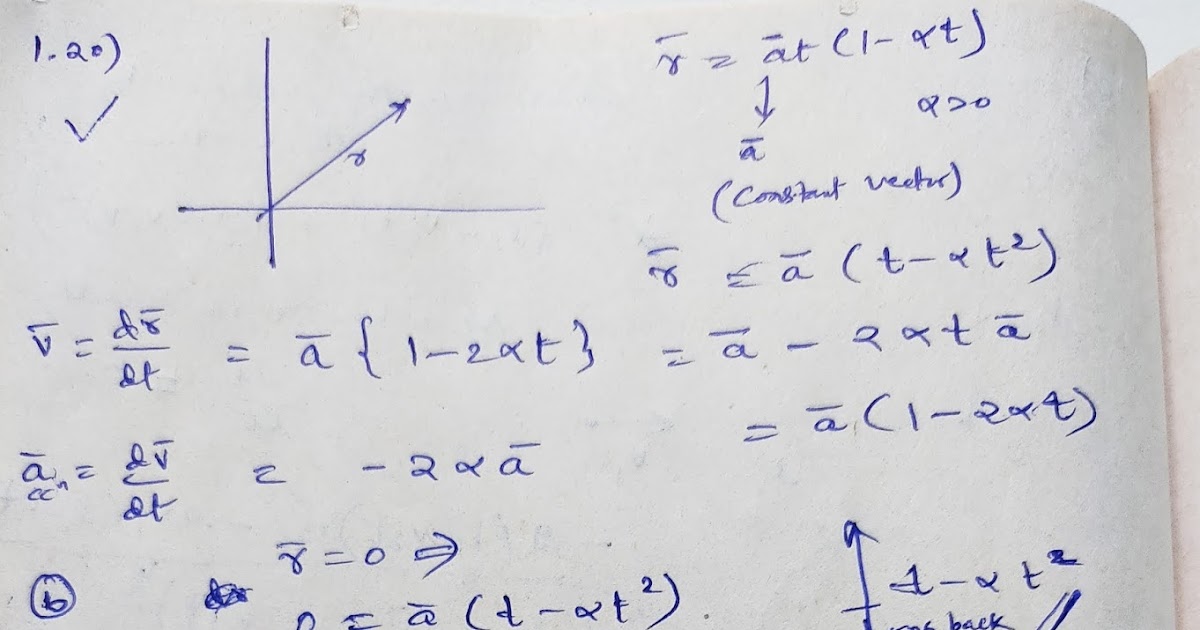 1.20)
r̄ = āt (1 - αt)
α>0
↓
ā
(Constant vector)
r
r̄ = ā (t - αt²)
v̄ = dr̄/dt = ā {1 - 2αt} = ā - 2αt ā
= ā (1 - 2αt)
ā accⁿ = dv̄/dt = -2αā
r̄ = 0 ⇒
(b) 0 = ā (t - αt²)
t - αt²
back